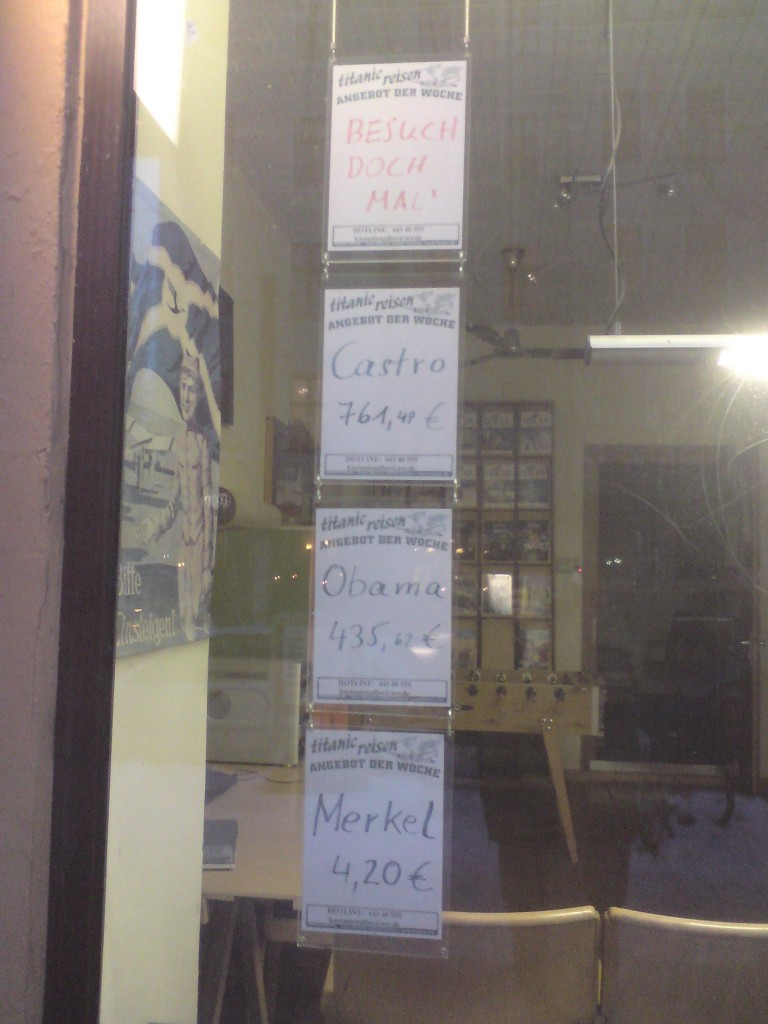 titanic reisen
ANGEBOT DER WOCHE
BESUCH
DOCH
MAL'
HOTLINE: 443 40 595
titanic reisen
ANGEBOT DER WOCHE
Castro
761,48 €
HOTLINE: 443 40 595
titanic reisen
ANGEBOT DER WOCHE
Obama
435,62 €
HOTLINE: 443 40 595
titanic reisen
ANGEBOT DER WOCHE
Merkel
4,20 €
HOTLINE: 443 40 595
Bitte